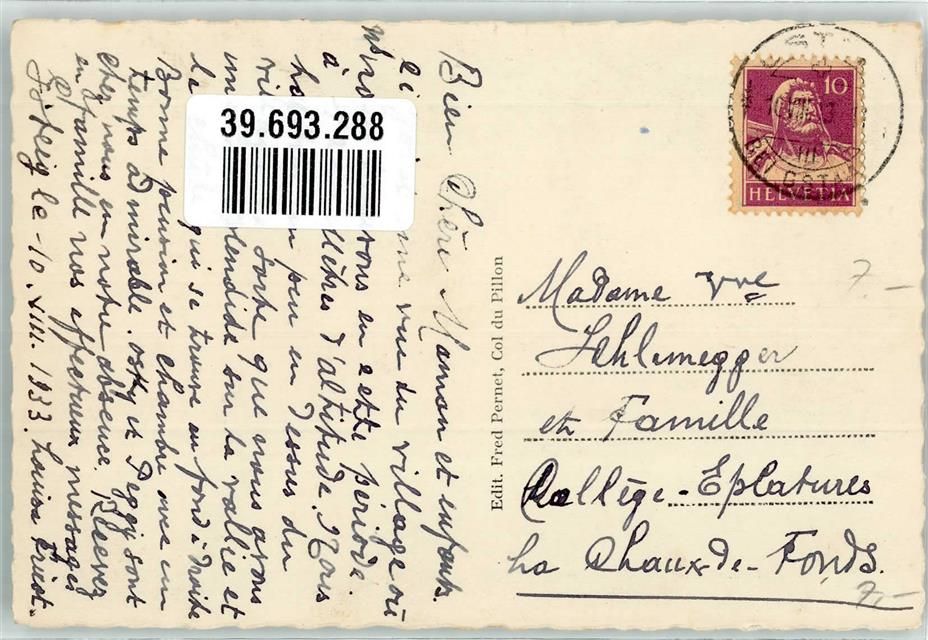 Bien Chère Maman et enfants.
une vue du village où
nous en cette période
à mètres d'altitude. Nous
en pour en dessus du
sorte que nous avons
une splendide sur la vallée et
le qui se trouve au fond à droite
Bonne pension et chambre avec un
temps admirable. Osky et Peggy sont
chez nous en notre absence. Recevez
en famille nos affectueux messages
le 10.VIII.1933. Louise
39.693.288
Edit. Fred Pernet, Col du Pillon
10
HELVETIA
Madame Vve
Schlunegger
et Famille
Collège-Eplatures
La Chaux-de-Fonds.
7.-
7.-